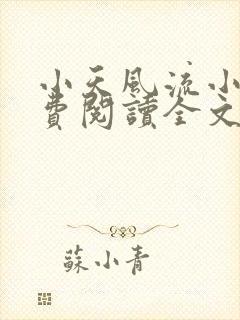 小天風流小
費閱讀全文
蘇小青